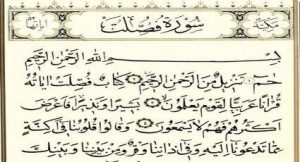 سورة فصلت
بسم الله الرحمن الرحيم
حم تنزيل من الرحمن الرحيم كتاب فصلت آياته
قرآنا عربيا لقوم يعلمون بشيرا ونذيرا فأعرض
أكثرهم فهم لا يسمعون وقالوا قلوبنا في أكنة
مما تدعونا إليه وفي آذاننا وقر ومن بيننا وبينك